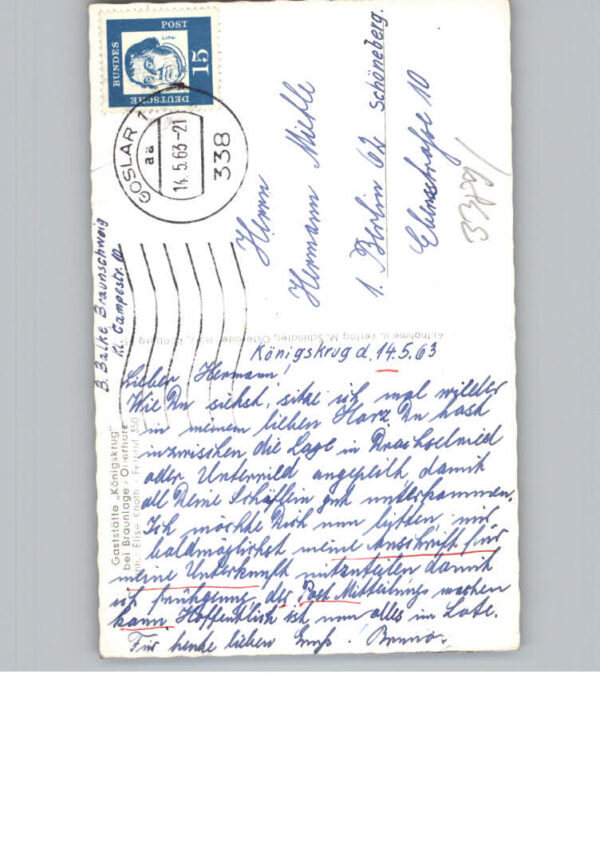 DEUTSCHE
BUNDES
POST
15
GOSLAR 1
aa
14.5.63-21
338
Herrn
Hermann
1. Berlin 62 Schöneberg.
10
B. Balke, Braunschweig
Kl. Campestr. 10
Gaststätte „Königskrug"
bei Braunlage / Oberharz
Königskrug d. 14.5.63
Lieber Hermann!
Wie Du siehst, sitze ich mal wieder
in meinem lieben Harz. Du hast
inzwischen die Lage in
oder Unterried angepeilt, damit
all Deine Schäflein gut unterkommen.
Ich möchte Dich nun bitten, mir
baldmöglichst meine Anschrift für
meine Unterkunft mitzuteilen damit
ich frühgenug der Post Mitteilung machen
kann. Hoffentlich ist nun alles im Lote.
Für heute lieben Gruß. Bruno.